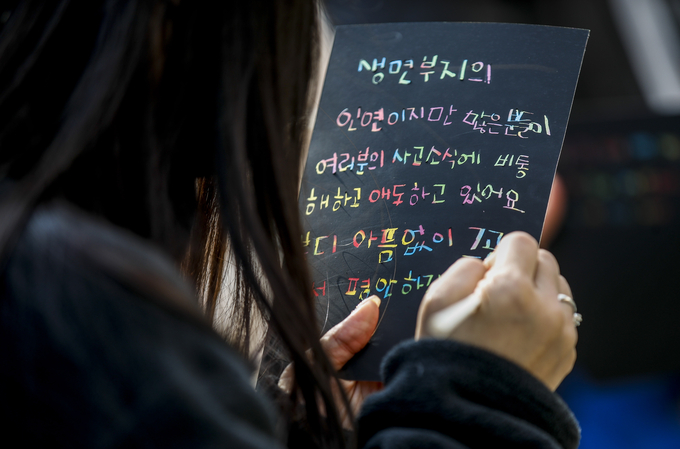 생면부지의
인연이지만 많은분들이
여러분의 사고소식에 비통
해하고 애도하고 있어요
디 아픔없이
평안하